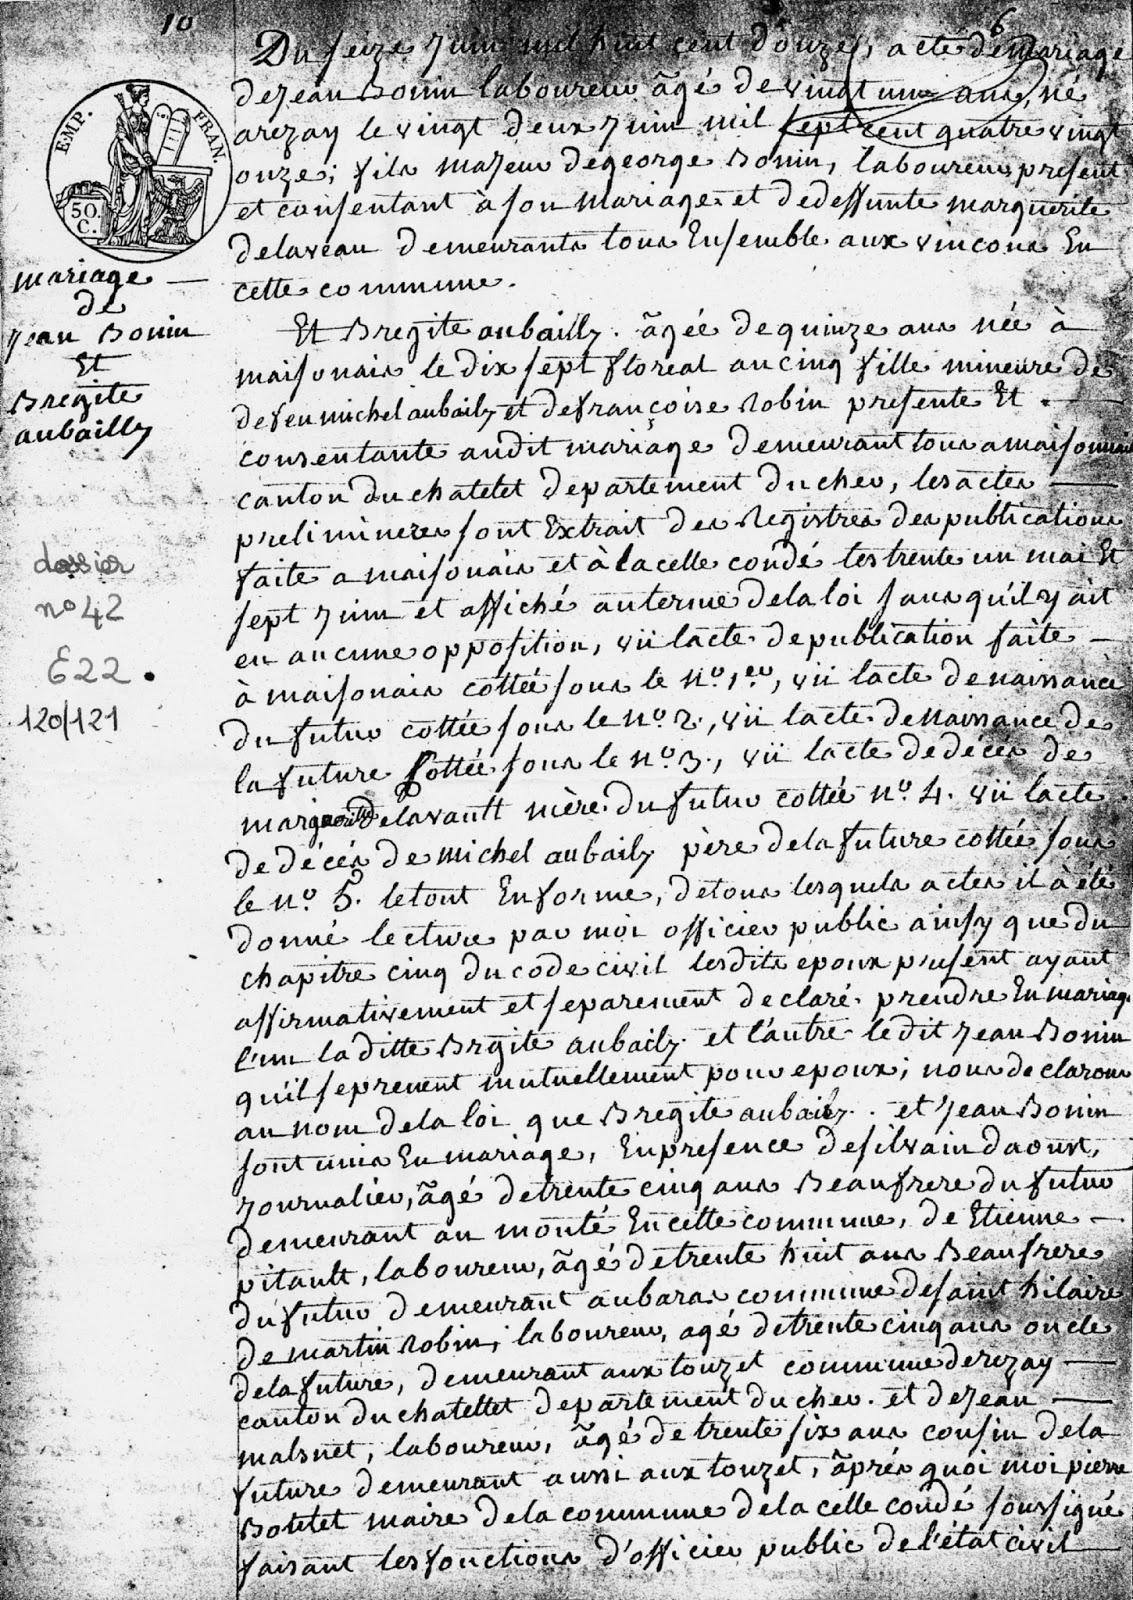 10
6
EMP. FRAN.
50. C.
mariage
de
jean Bonin
Et
Bregite
aubailly
dossier
n° 42
E22.
120/121
Du seize juin mil huit cent douze, acte de mariage
de jean Bonin laboureur âgé de vingt un ans, né
arezay le vingt deux juin mil sept cent quatre vingt
onze; fils majeur de george Bonin, laboureur present
et consentant à son mariage et de deffunte marguerite
delaveau demeurants tous Ensemble aux vincons En
cette commune.
Et Bregite aubailly. âgée de quinze ans née à
maisonais le dix sept floreal an cinq fille mineure de
de feu michel aubaily et de françoise Robin presente Et
consentante audit mariage demeurant tous a maisonnais
canton du chatelet departement du cher, les actes
prelimineres sont Extrait des Registres des publications
faite a maisonais et à la celle condé les trente un mai Et
sept juin et affiché au terme de la loi sans qu'il y ait
eu aucune opposition, vû lacte de publication faite
à maisonais cottée sous le n°. 1er, vû lacte de naissance
du futur cottée sous le n° 2., vû lacte de naissance de
la future cottée sous le n° 3., vû lacte de décès de
marguerite delavault mère du futur cottée n°. 4. vû lacte
de décés de michel aubaily père de la future cottée sous
le n°. 5. le tout En forme, de tous lesquels actes il à été
donné lecture par moi officier public ainsy que du
chapitre cinq du code civil lesdits epoux present ayant
affirmativement et separement declaré prendre En mariage
l'un la ditte Brgite aubaily et l'autre le dit jean Bonin
qu'il se prenent mutuellement pour epoux; nous declarons
au nom de la loi que Bregite aubaily. et jean Bonin
sont unis En mariage, En presence de silvain daoust,
journalier, âgé de trente cinq ans Beaufrere du futur
demeurant au monté En cette commune, de Etienne
pitault, laboureur, âgé de trente huit ans Beaufrere
du futur demeurant aubaras commune de saint hilaire
de martin Robin; laboureur, agé de trente cinq ans oncle
de la future, demeurant aux touzet commune de rezay
canton du chatellet departement du cher. et de jean
malsnet, laboureur, âgé de trente six ans cousin de la
future demeurant aussi aux touzet, âprés quoi moi pierre
Botitet maire de la commune de la celle condé soussigné
faisant les fonctions d'officier public de l'état civil